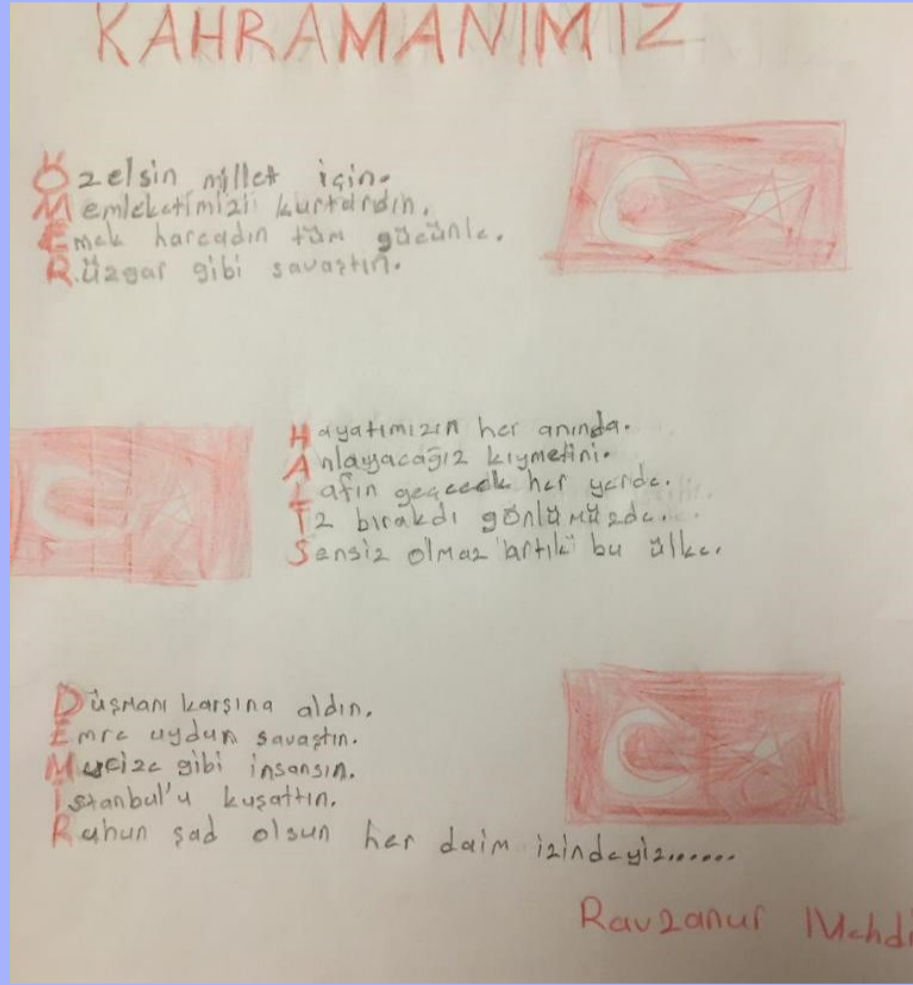 KAHRAMANIMIZ
Özelsin millet için.
Memleketimizi kurtardın.
Emek harcadın tüm gücünle.
Rüzgar gibi savaştın.
Hayatımızın her anında.
Anlayacağız kıymetini.
Lafın geçecek her yerde.
İz bırakdı gönlümüzde...
Sensiz olmaz artık bu ülke.
Düşmanı karşına aldın.
Emre uydun savaştın.
Mucize gibi insansın.
İstanbul'u kuşattın.
Ruhun şad olsun her daim izindeyiz......
Ravzanur Mehdi